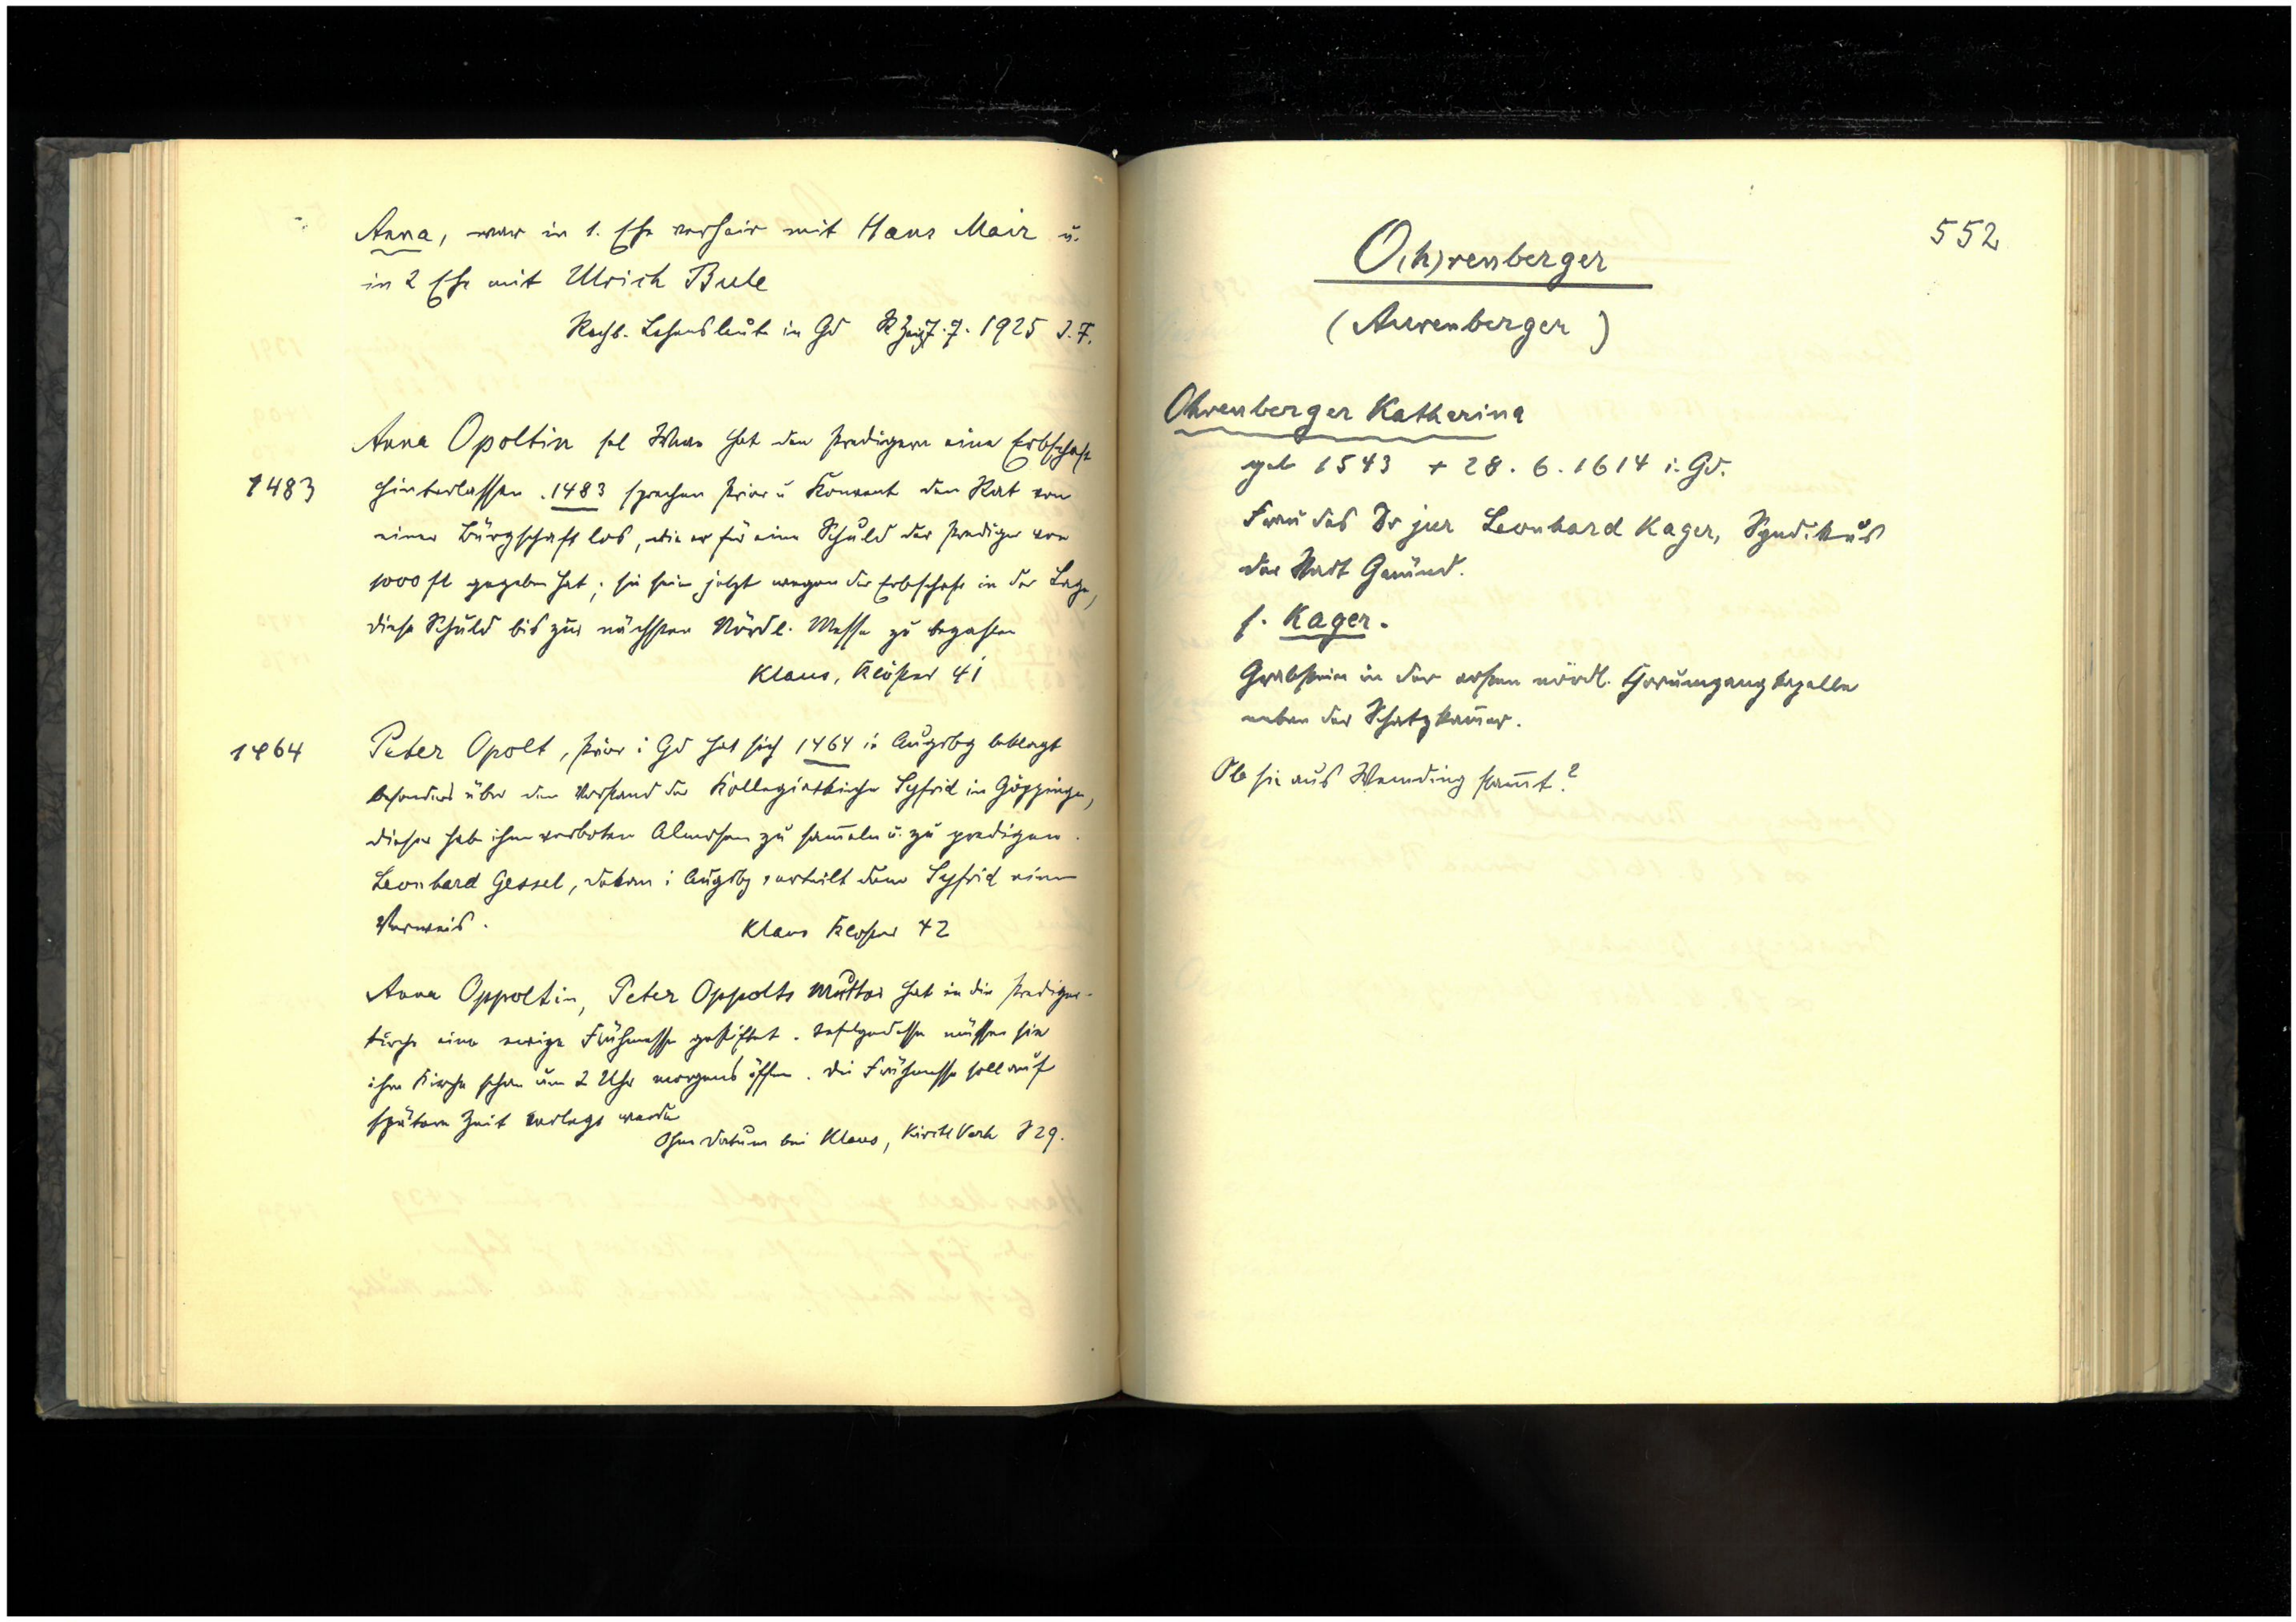 Anna, war in 1. Ehe verheir mit Hans Mair u.
in 2 Ehe mit Ulrich Bule
Rechb. Lehensleute in Gd R Zeitg 7. 7. 1925 J. F.
Anna Opoltin sel Wwe hat den Predigern eine Erbschaft
1483
hinterlassen. 1483 sprechen Prior u Konvent den Rat von
einer Bürgschaft los, die er für eine Schuld der Prediger von
1000 fl gegeben hat; sie seien jetzt wegen der Erbschaft in der Lage,
diese Schuld bis zur nächsten Nördl. Messe zu bezahlen
Klaus, Klöster 41
1464
Peter Opolt, Prior i Gd hat sich 1464 in Augsbg beklagt
besonders über den Vorstand der Kollegiatkirche Syfrid in Göppingen,
dieser habe ihm verboten Almosen zu sam̄eln u. zu predigen.
Leonhard Gessel, Dekan i Augsbg, erteilt dem Syfrid einen
Verweis.
Klaus Kloster 42
Anna Oppoltin, Peter Oppolts Mutter hat in die Prediger-
kirche eine ewige Frühmesse gestiftet. Infolgedessen müssen sie
ihre Kirche schon um 2 Uhr morgens öffnen. Die Frühmesse soll auf
spätere Zeit verlegt werden
Ohne Datum bei Klaus, Kirchl Verh S 29.
552
O(h)renberger
(Aurenberger)
Ohrenberger Katharina
geb 1543 + 28. 6. 1614 i. Gd.
Frau des Dr jur Leonhard Kager, Syndikus
der Stadt Gmünd.
s. Kager.
Grabstein in der ersten nördl. Chorumgangkapelle
neben der Schatzkam̄er.
Ob sie aus Wemding stam̄t?